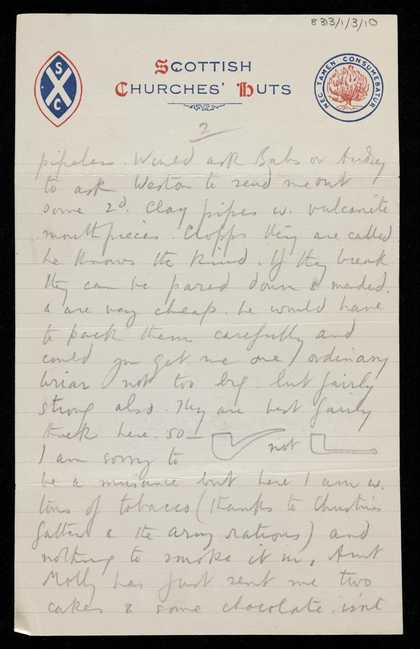 8313/1/3/10
S
C
SCOTTISH
CHURCHES' HUTS
NEC TAMEN CONSUMEBATUR
2
pipeless. Would ask Babs or Audrey
to ask Weston to send me out
some 2d. Clay pipes w. vulcanite
mouthpieces. Cropps they are called
he knows the kind. If they break
they can be pared down & mended.
& are very cheap. he would have
to pack them carefully and
could you get me one ordinary
briar not too big. but fairly
strong also. They are best fairly
thick here. so— not
I am sorry to
be a nuisance but here I am w.
tons of tobacco (thanks to
& the army rations) and
nothing to smoke it in. Aunt
Molly has just sent me two
cakes & some chocolate. isnt